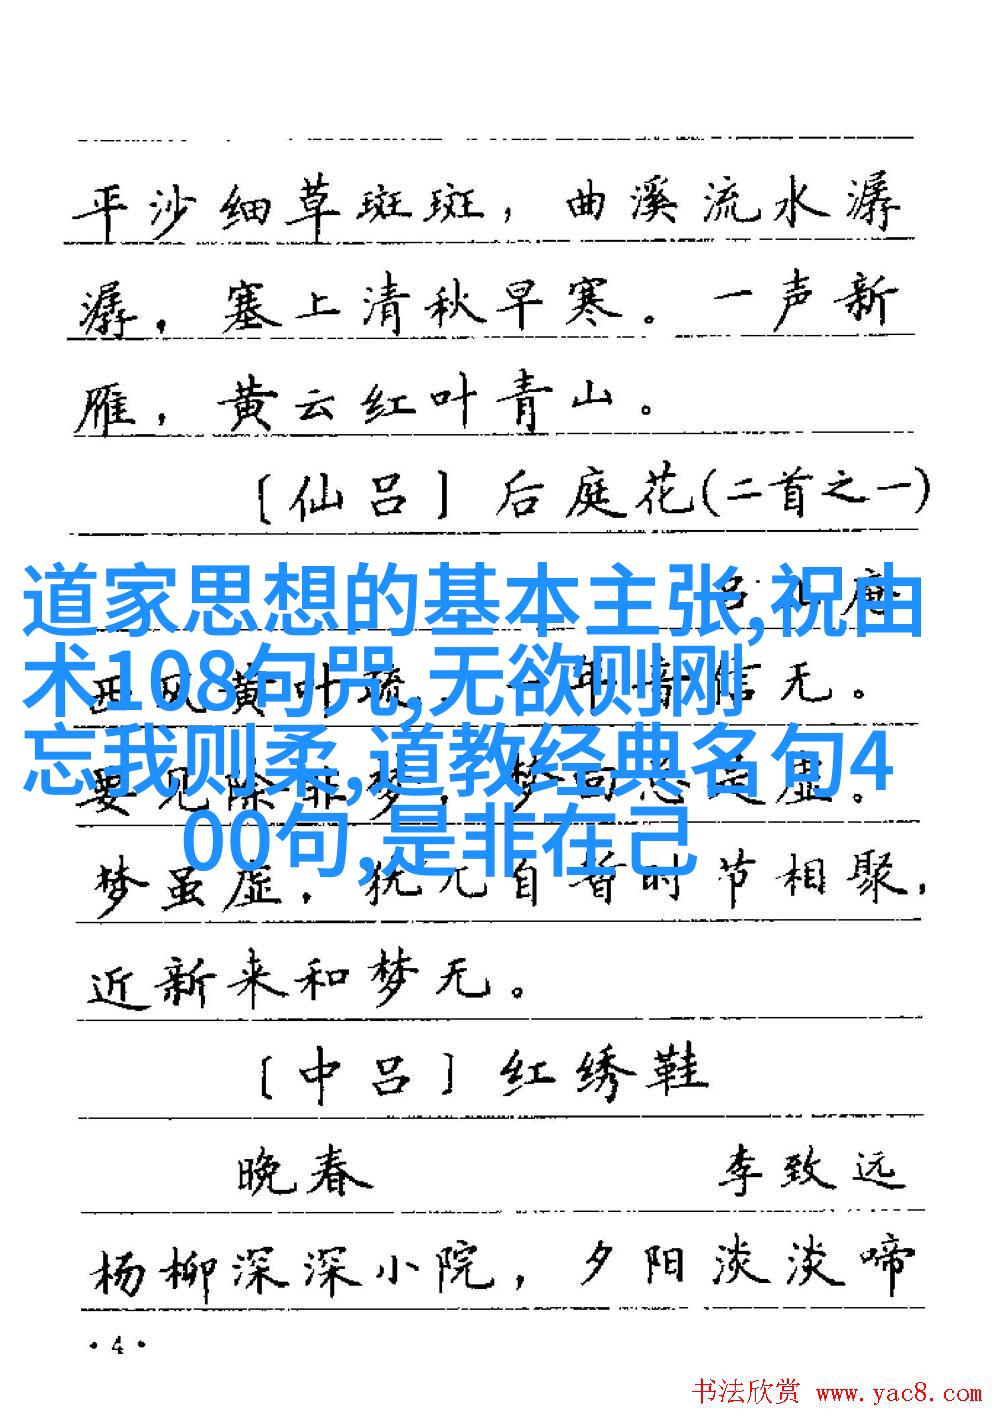 平沙细草斑斑，曲溪流水潺
潺，塞上清秋早寒。一声新
雁，黄云红叶青山。
〔仙吕〕后庭花(二首之一)
道家思想的基本主张,祝由
术108句咒,无欲则刚
忘我则柔,道教经典名句4
00句,是非在己
西风黄叶疏，一年音信无。
要见除非梦，梦回总是虚。
梦虽虚，犹兀自暂时节相聚，
近新来和梦无。
〔中吕〕红绣鞋
晚春 李致远
杨柳深深小院，夕阳淡淡啼
·4·
书法欣赏 www.yac8.com